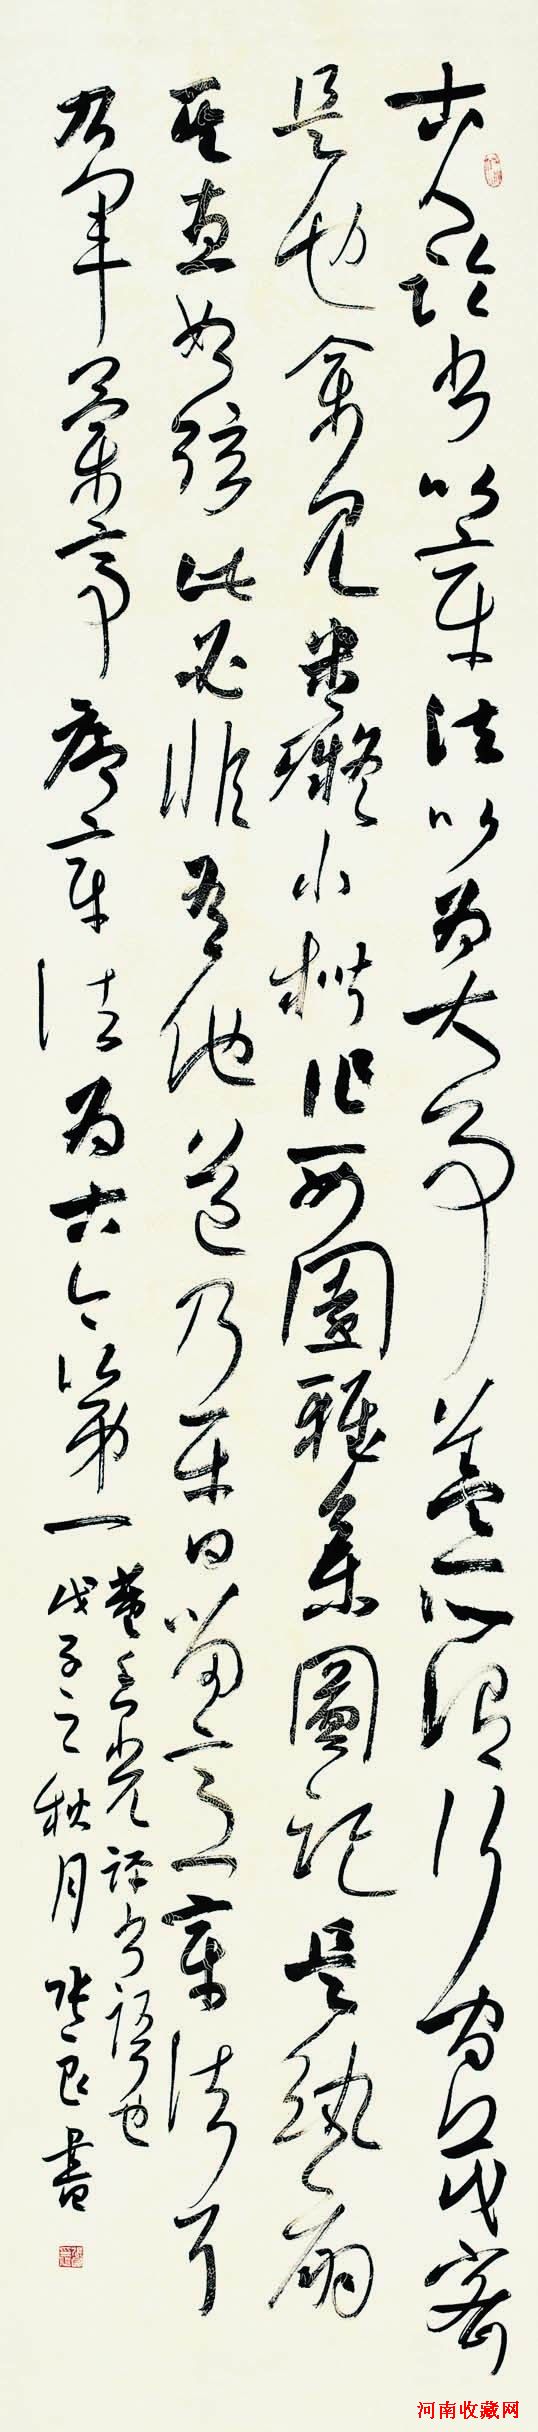 古人論書以章法以為大事蓋所謂行間茂密
是也余見米癡小楷作西園雅集圖記是紈扇
其直如弦此必非有他道乃平日留意章法耳
右軍蘭亭序章法為古今第一
董香光評書語也
戊子之秋月張良書
河南收藏网